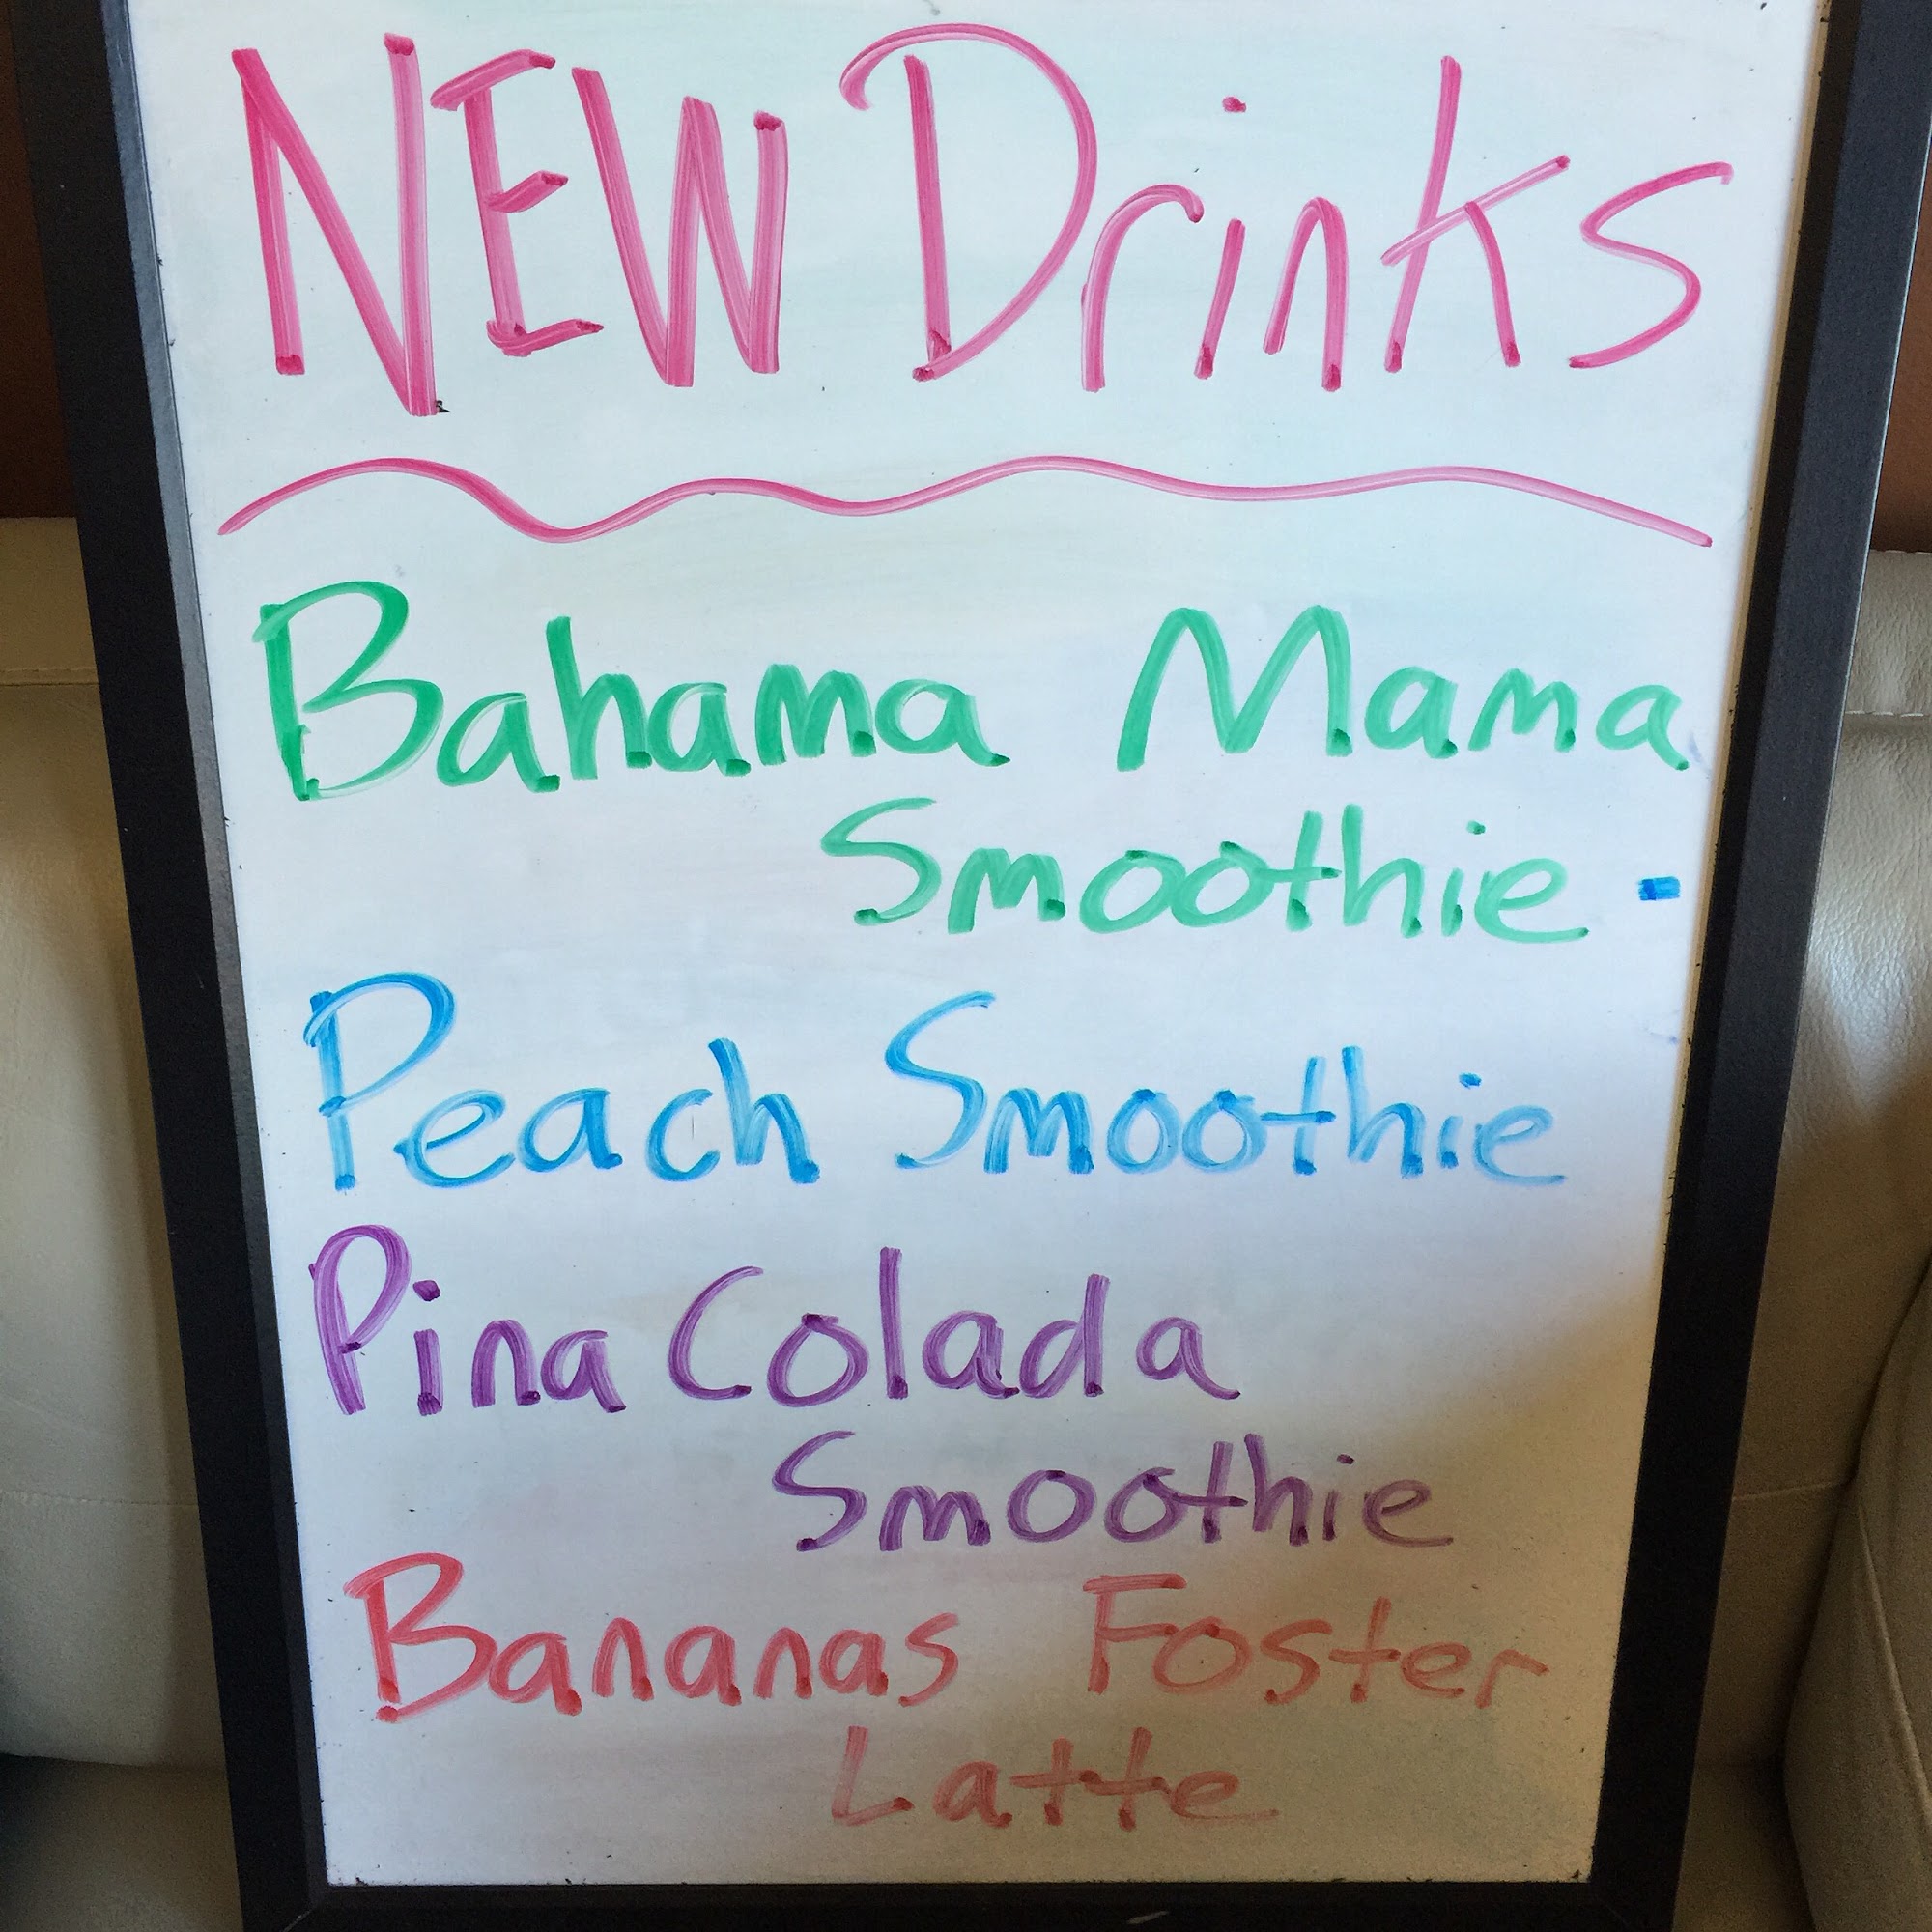 NEW Drinks
Bahama Mama
Smoothie
Peach Smoothie
Pina Colada
Smoothie
Bananas Foster
Latte